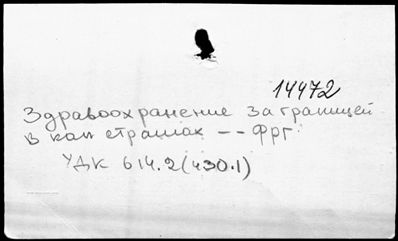 14472
Здравоохранение за границей
в кап странах -- ФРГ
УДК 614.2(430.1)